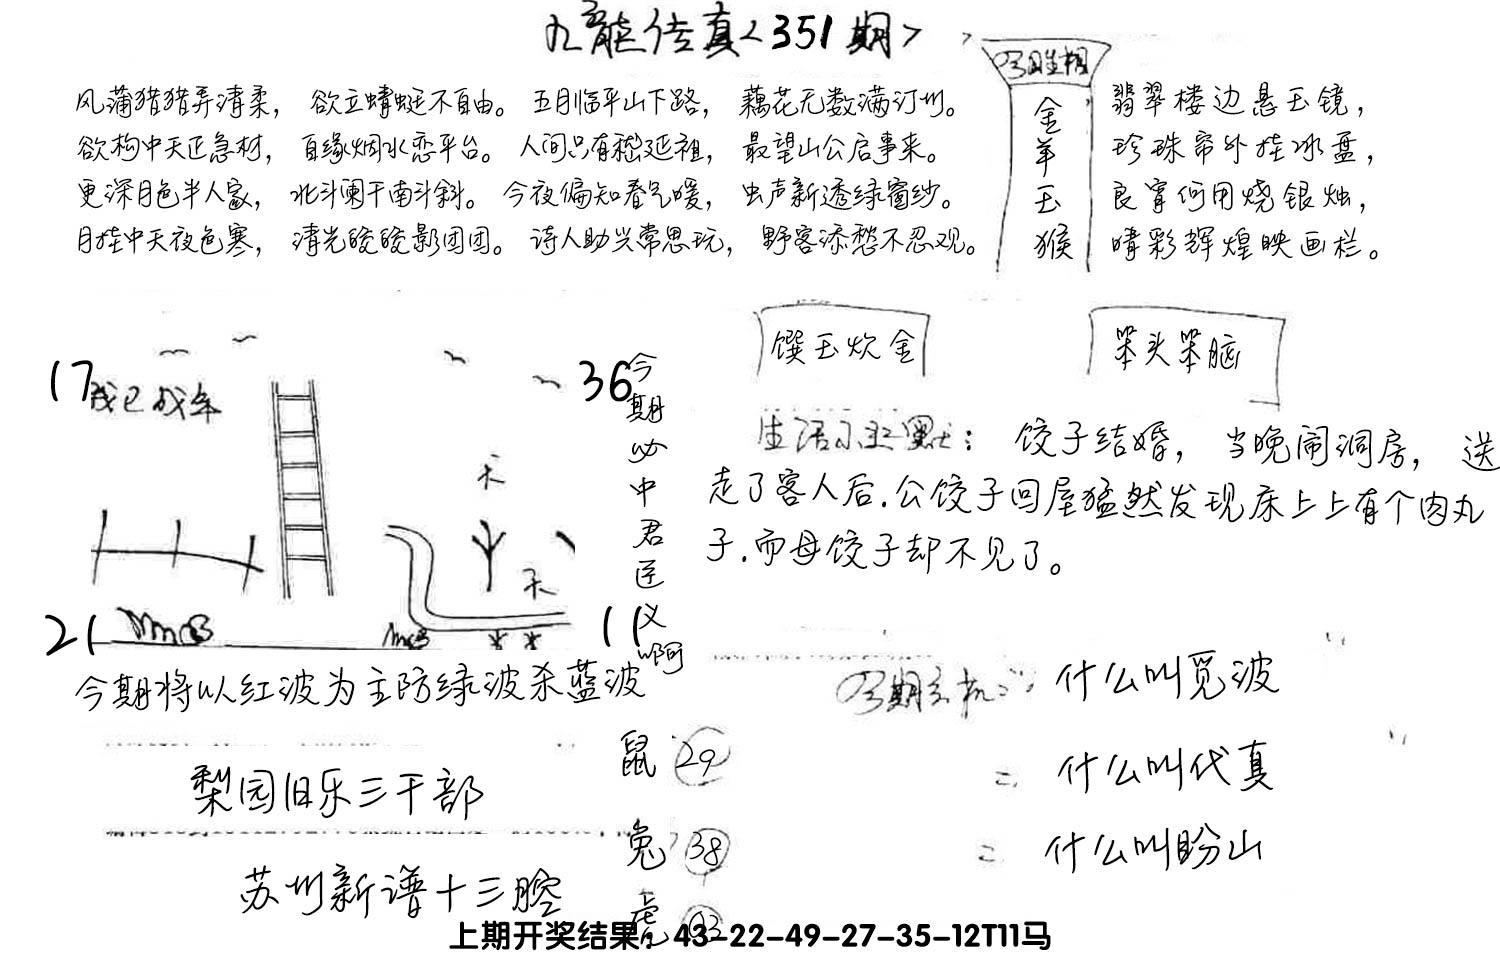 九龙传真<351期>
风蒲猎猎弄清柔， 欲立蜻蜓不自由。 五月临平山下路， 藕花无数满汀州。
欲构中天正急材， 自缘烟水恋平台。 人间只有嵇延祖， 最望山公启事来。
更深月色半人家， 北斗阑干南斗斜。 今夜偏知春气暖， 虫声新透绿窗纱。
月挂中天夜色寒， 清光皎皎影团团。 诗人助兴常思玩， 野客添愁不忍观。
金羊玉猴
翡翠楼边悬玉镜，
珍珠帘外挂冰盘，
良宵何用烧银烛，
晴彩辉煌映画栏。
馔玉炊金
笨头笨脑
17
36
21
11
今期必中君臣义啊
生活小幽默： 饺子结婚， 当晚闹洞房， 送
走了客人后.公饺子回屋猛然发现床上上有个肉丸
子.而母饺子却不见了。
今期将以红波为主防绿波杀蓝波
今期玄机： 什么叫觅波
= 什么叫代真
= 什么叫盼山
鼠 29
兔 38
梨园旧乐三千部
苏州新谱十三腔
上期开奖结果：43-22-49-27-35-12T11马